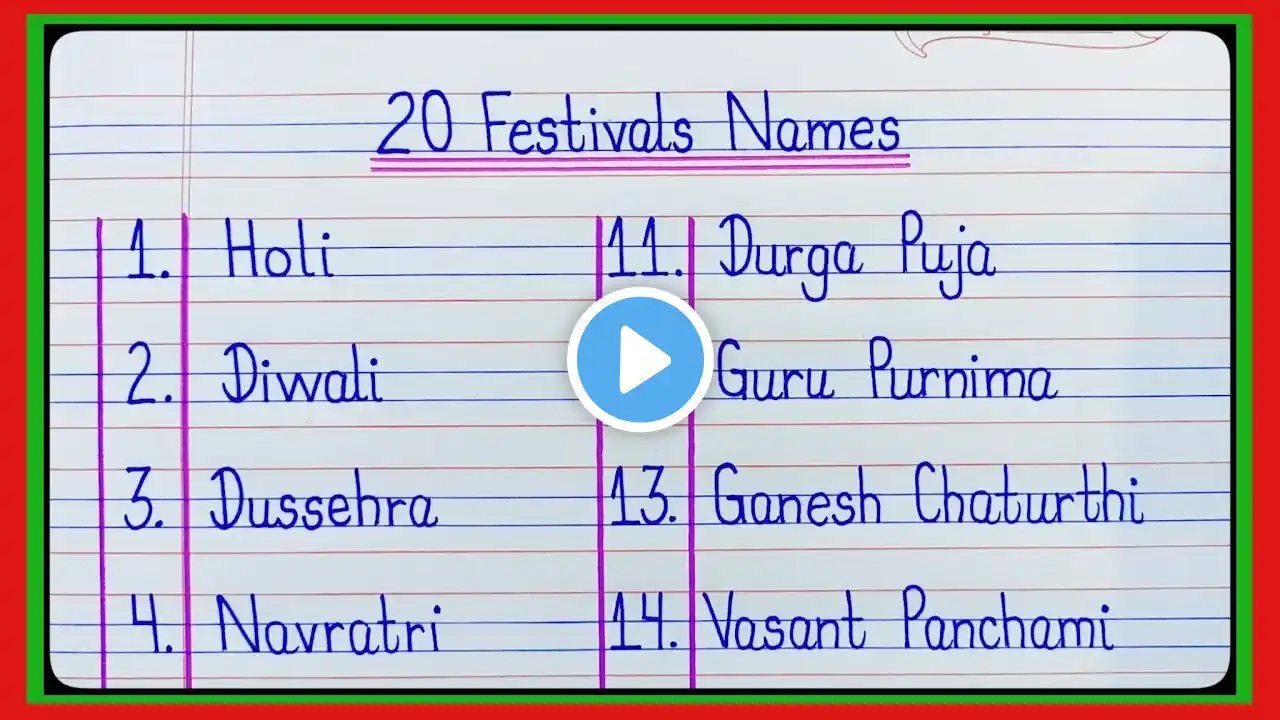 20 Festivals Names
1. Holi
2. Diwali
3. Dussehra
4. Navratri
11. Durga Puja
Guru Purnima
13. Ganesh Chaturthi
14. Vasant Panchami